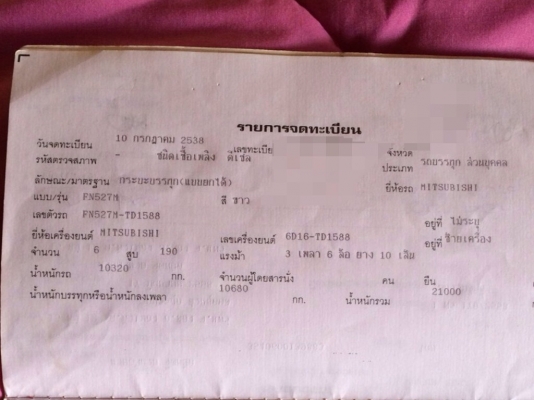 รายการจดทะเบียน
วันจดทะเบียน 10 กรกฎาคม 2538 เลขทะเบีย จังหวด
รหัสตรวจสภาพ - ชนิดเชื้อเพลิง ดีเซล ประเภท รถบรรทุก ส่วนบุคคล
ลักษณะ/มาตรฐาน กระบะบรรทุก(แบบยกได้) ยี่ห้อรถ MITSUBISHI
แบบ/รุ่น FN527M สี ขาว
เลขตัวรถ FN527M-TD1588 อยู่ที่ ไม่ระบุ
ยี่ห้อเครื่องยนต์ MITSUBISHI เลขเครื่องยนต์ 6D16-TD1588 อยู่ที่ ซ้ายเครื่อง
จำนวน 6 สูบ 190 แรงม้า 3 เพลา 6 ล้อ ยาง 10 เส้น
น้ำหนักรถ 10320 กก. จำนวนผู้โดยสารนั่ง คน ยืน
น้ำหนักบรรทุกหรือน้ำหนักลงเพลา 10680 กก. น้ำหนักรวม 21000